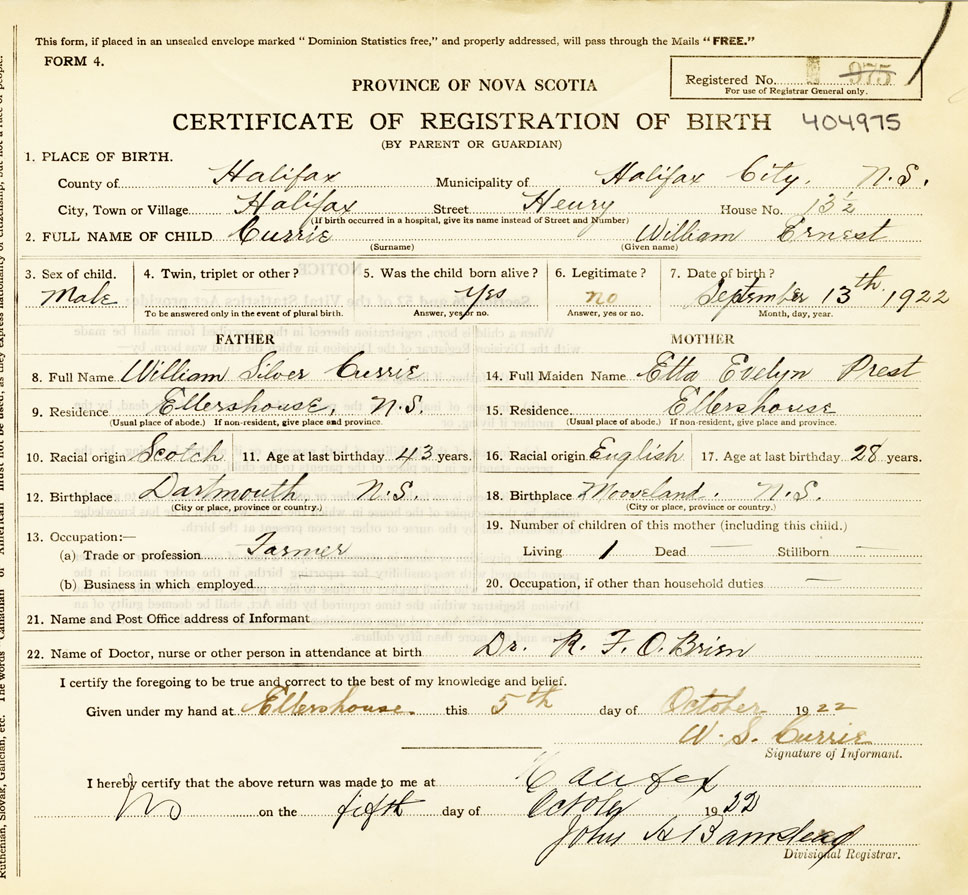 This form, if placed in an unsealed envelope marked “ Dominion Statistics free,” and properly addressed, will pass through the Mails “ FREE.”
FORM 4.
Registered No. 975
For use of Registrar General only.
PROVINCE OF NOVA SCOTIA
CERTIFICATE OF REGISTRATION OF BIRTH 404975
(BY PARENT OR GUARDIAN)
1. PLACE OF BIRTH.
County of Halifax Municipality of Halifax City. N.S.
City, Town or Village Halifax Street Henry House No. 13½
(If birth occurred in a hospital, give its name instead of Street and Number)
2. FULL NAME OF CHILD Currie William Ernest
(Surname) (Given name)
3. Sex of child. 4. Twin, triplet or other? 5. Was the child born alive? 6. Legitimate? 7. Date of birth?
Male yes no September 13th 1922
To be answered only in the event of plural birth. Answer, yes or no. Answer, yes or no. Month, day, year.
FATHER MOTHER
8. Full Name William Silver Currie 14. Full Maiden Name Etta Evelyn Prest
9. Residence Ellershouse, N.S. 15. Residence. Ellershouse
(Usual place of abode.) If non-resident, give place and province. (Usual place of abode.) If non-resident, give place and province.
10. Racial origin Scotch 11. Age at last birthday 43 years. 16. Racial origin English 17. Age at last birthday 28 years.
12. Birthplace Dartmouth N.S. 18. Birthplace Mooseland. N.S.
(City or place, province or country.) (City or place, province or country.)
13. Occupation:— 19. Number of children of this mother (including this child.)
(a) Trade or profession Farmer Living 1 Dead — Stillborn —
(b) Business in which employed — 20. Occupation, if other than household duties —
21. Name and Post Office address of Informant
22. Name of Doctor, nurse or other person in attendance at birth Dr. R. F. O.Brien
I certify the foregoing to be true and correct to the best of my knowledge and belief.
Given under my hand at Ellershouse. this 5th day of October 1922
W. S. Currie
Signature of Informant.
I hereby certify that the above return was made to me at Halifax
NS on the fifth day of October 1922
John H Barnstead
Divisional Registrar.